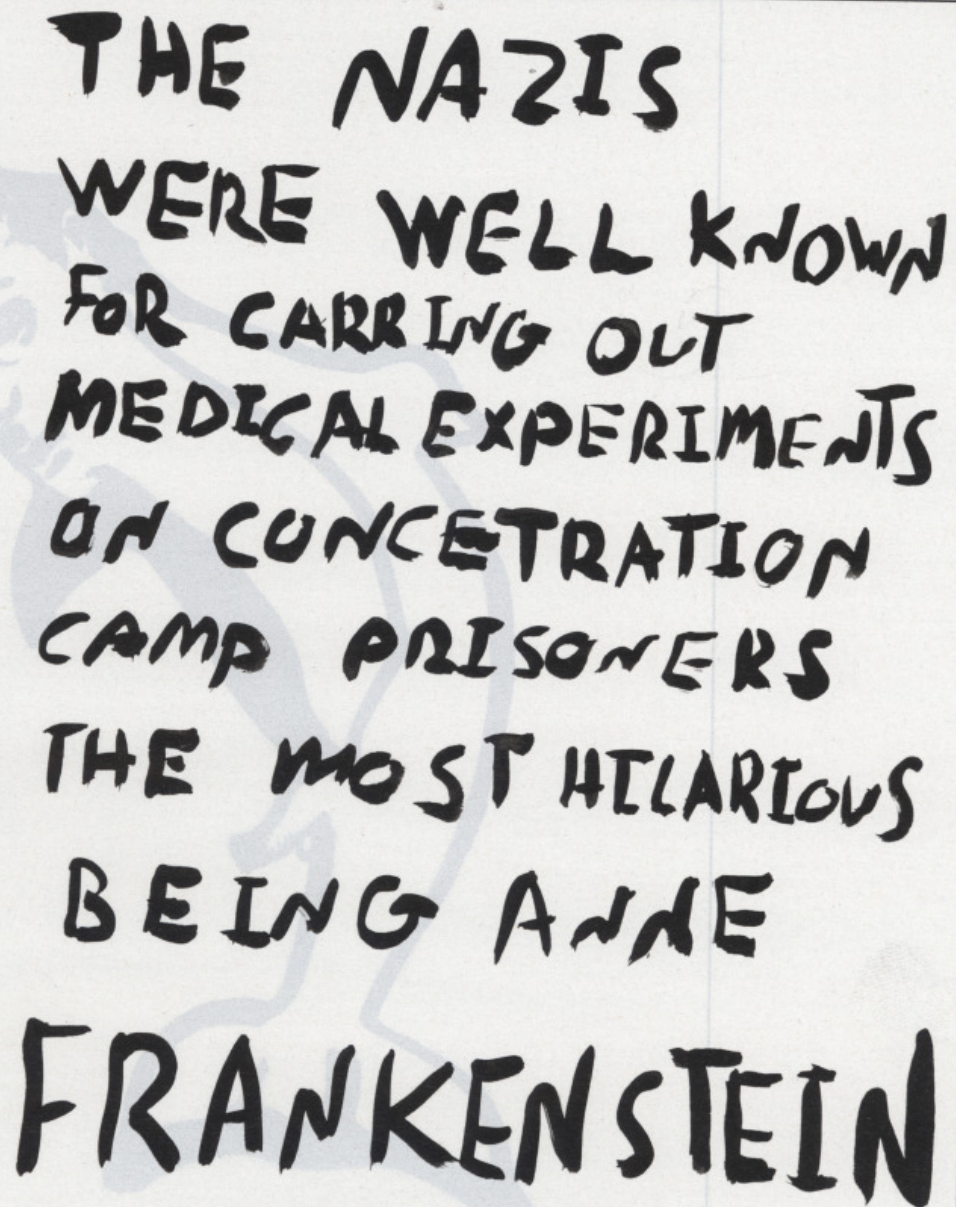 THE NAZIS
WERE WELL KNOWN
FOR CARRING OUT
MEDICAL EXPERIMENTS
ON CONCETRATION
CAMP PRISONERS
THE MOST HILARIOUS
BEING ANNE
FRANKENSTEIN